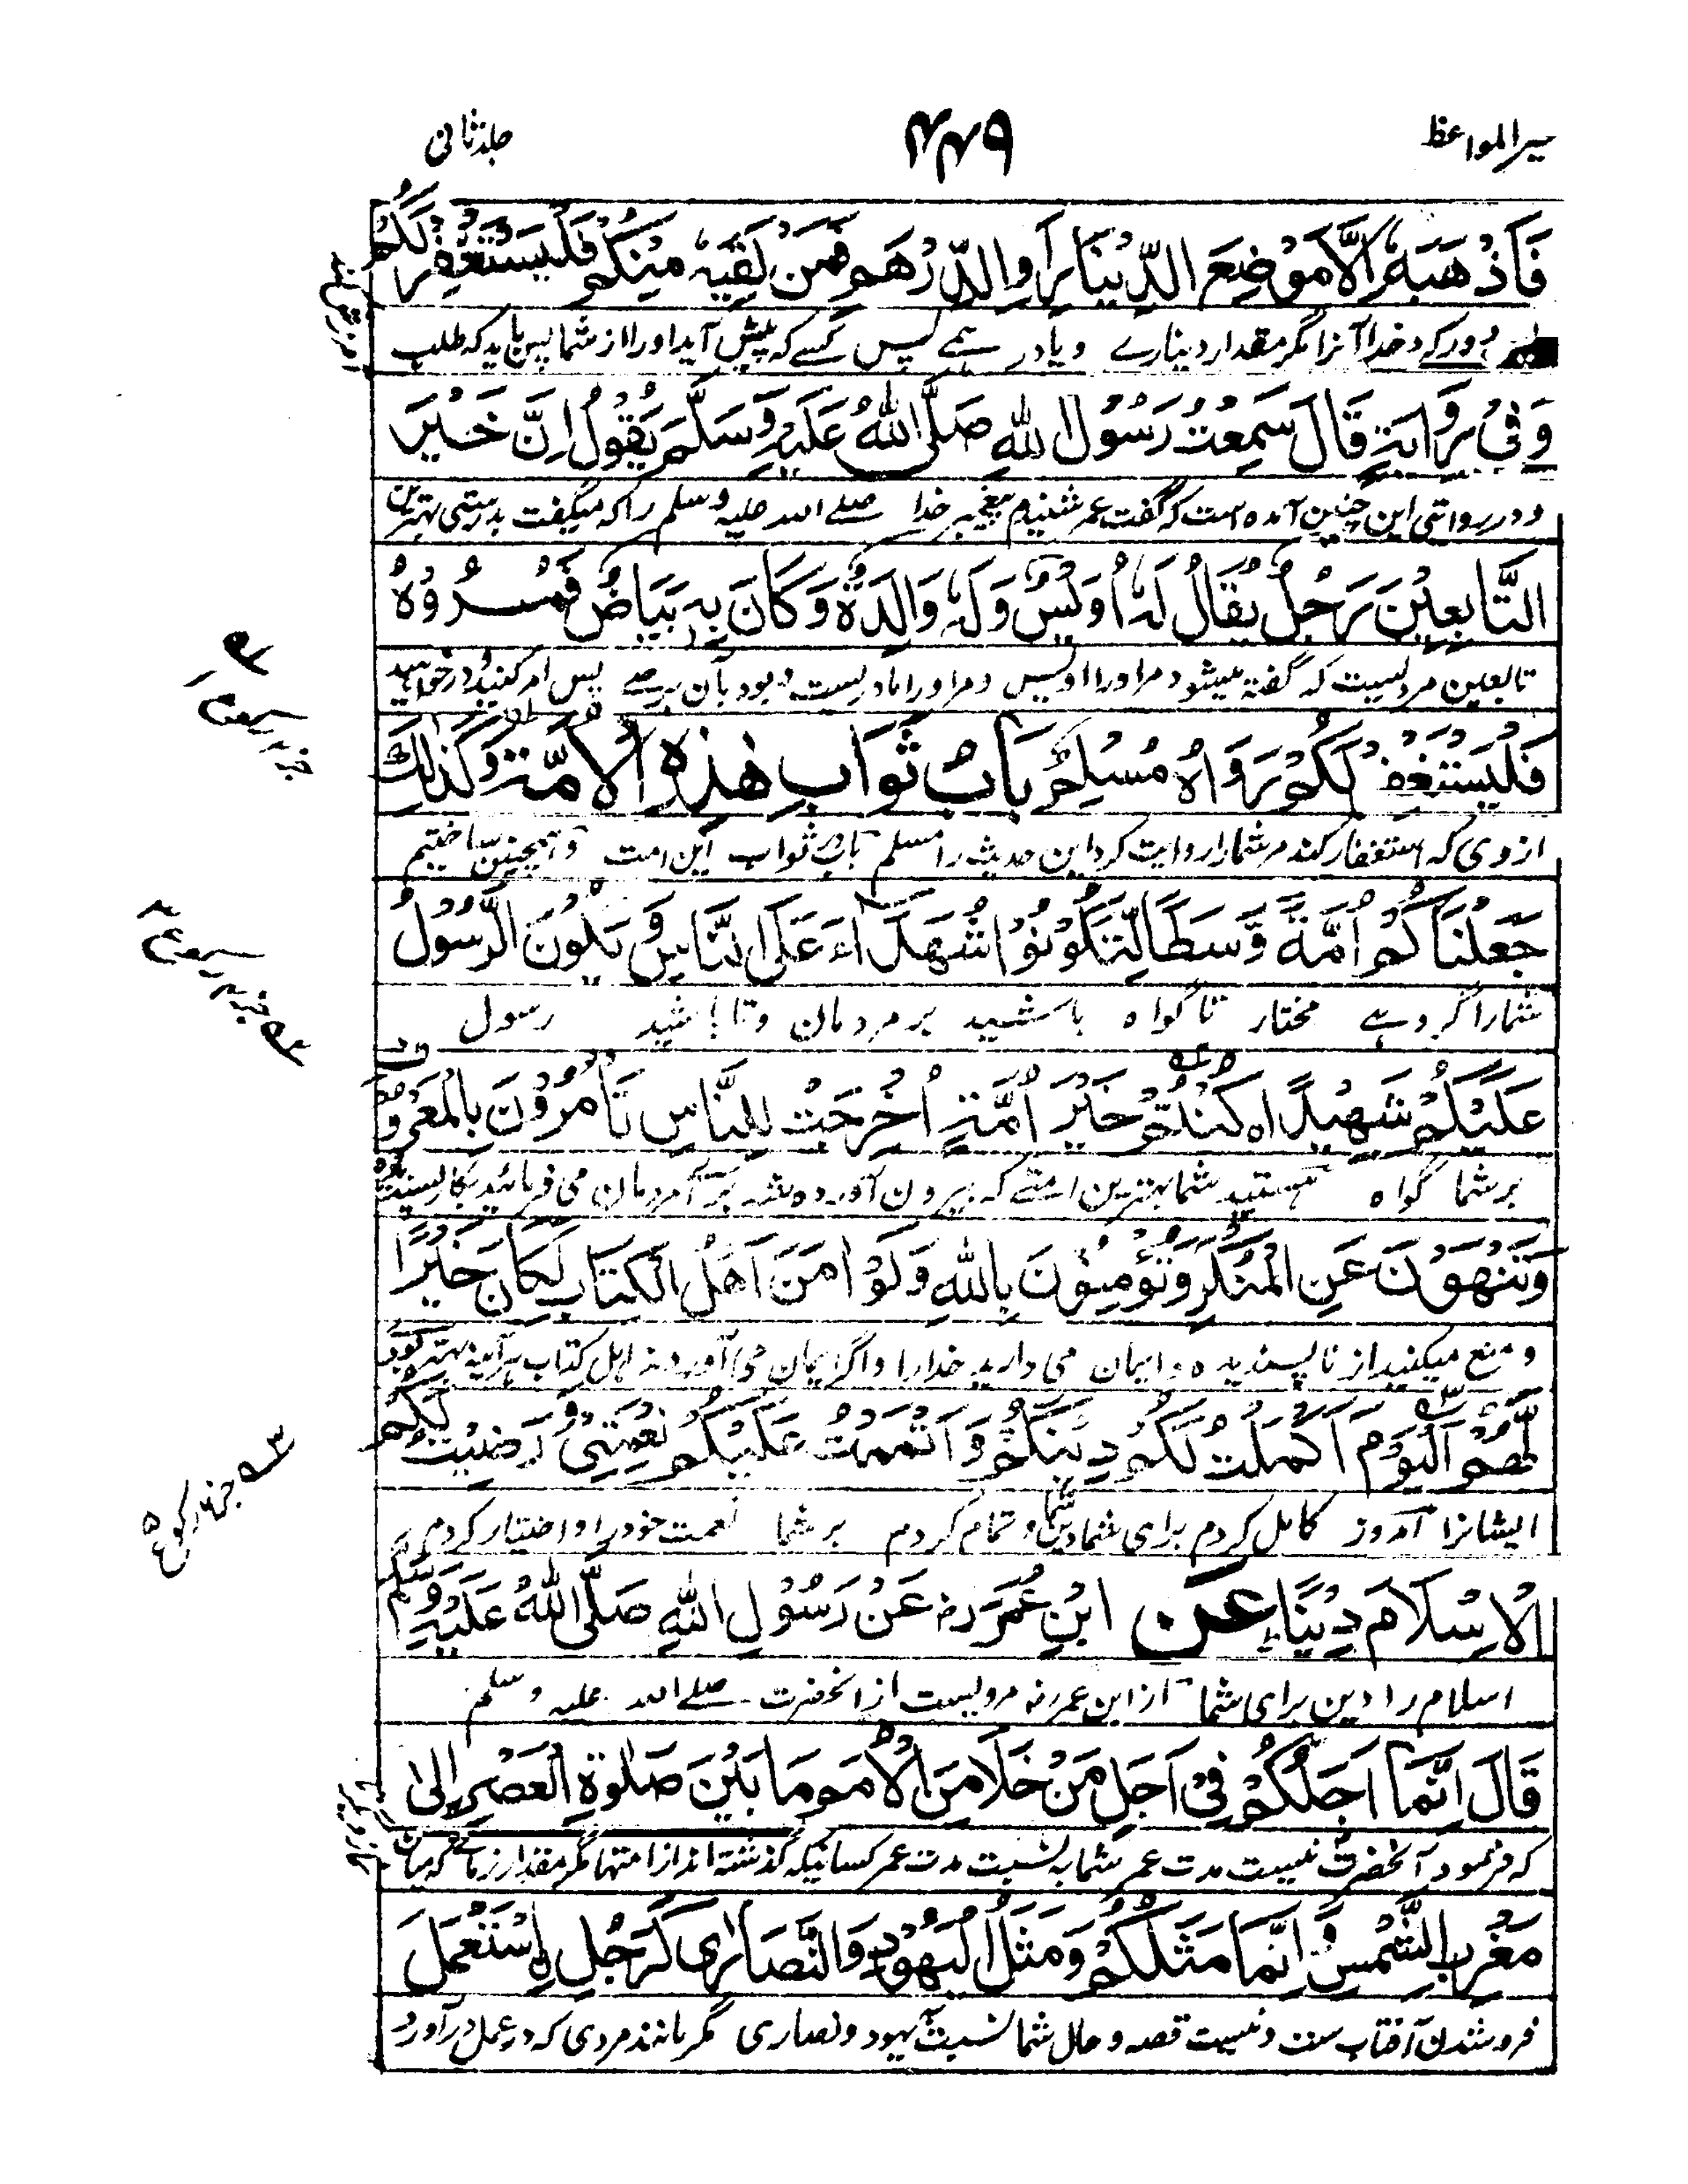 سیر المواعظ
۴۴۹
جلد ثانی
فَاَذْهَبَهٗ اِلَّا مَوْضِعَ الدِّیْنَارِ اَوِالدِّرْهَمِ فَمَنْ لَقِیَهٗ مِنْکُمْ فَلْیَسْتَغْفِرْ لَکُمْ
دور کرد خدا آنرا مگر مقدار دینارے و یا درہمے پس کسے کہ پیش آید اورا از شما پس باید کہ طلب
وَفِیْ رِوَایَةٍ قَالَ سَمِعْتُ رَسُوْلَ اللهِ صَلَّی اللهُ عَلَیْهِ وَسَلَّمَ یَقُوْلُ اِنَّ خَیْرَ
و در روایتی این چنین آمده است کہ گفت عمر شنیدم پیغمبر خدا صلے اللہ علیہ وسلم را کہ میگفت بدرستی بہترین
التَّابِعِیْنَ رَجُلٌ یُقَالُ لَهٗ اُوَیْسٌ وَلَهٗ وَالِدَةٌ وَکَانَ بِهٖ بَیَاضٌ فَمُرُوْهُ
تابعین مردیست کہ گفتہ میشود مر اورا اویس و مر اورا مادریست و بود بآن برصے پس امر کنید و درخواہید
فَلْیَسْتَغْفِرْ لَکُمْ رَوَاهُ مُسْلِمٌ بَابُ ثَوَابِ هٰذِهِ الْاُمَّةِ وَکَذٰلِكَ
از وی کہ استغفار کند مر شما را روایت کرد این حدیث را مسلم باب ثواب این امت و ہمچنین ساختیم
جَعَلْنَاکُمْ اُمَّةً وَّسَطًا لِّتَکُوْنُوْا شُهَدَاءَ عَلَی النَّاسِ وَیَکُوْنَ الرَّسُوْلُ
شما را گروہے مختار تا گواہ باشید بر مردمان و تا باشد رسول
عَلَیْکُمْ شَهِیْدًا کُنْتُمْ خَیْرَ اُمَّةٍ اُخْرِجَتْ لِلنَّاسِ تَاْمُرُوْنَ بِالْمَعْرُوْفِ
بر شما گواہ ہستید شما بہترین امتے کہ بیرون آورده شد برآ مردمان می فرمائید بکار پسندیدہ
وَتَنْهَوْنَ عَنِ الْمُنْکَرِ وَتُؤْمِنُوْنَ بِاللهِ وَلَوْ اٰمَنَ اَهْلُ الْکِتَابِ لَکَانَ خَیْرًا
و منع میکنید از ناپسندیدہ و ایمان می دارید خدا را و اگر ایمان می آوردند اہل کتاب ہر آینہ بہتر بود
لَّهُمْ اَلْیَوْمَ اَکْمَلْتُ لَکُمْ دِیْنَکُمْ وَاَتْمَمْتُ عَلَیْکُمْ نِعْمَتِیْ وَرَضِیْتُ لَکُمُ
ایشانرا امروز کامل کردم برای شما دین شما و تمام کردم بر شما نعمت خود را و اختیار کردم
الْاِسْلَامَ دِیْنًا عَنِ ابْنِ عُمَرَ رض عَنْ رَسُوْلِ اللهِ صَلَّی اللهُ عَلَیْهِ وَسَلَّمَ
اسلام را دین برای شما از ابن عمر رض مرویست از آنحضرت صلے اللہ علیہ وسلم
قَالَ اِنَّمَا اَجَلُکُمْ فِیْ اَجَلِ مَنْ خَلَا مِنَ الْاُمَمِ مَا بَیْنَ صَلٰوةِ الْعَصْرِ اِلٰی
کہ فرمود آنحضرت نیست مدت عمر شما بہ نسبت مدت عمر کسانیکہ گذشتہ اند از امتہا مگر مقدار زمانے کہ میان
مَغْرِبِ الشَّمْسِ وَاِنَّمَا مَثَلُکُمْ وَمَثَلُ الْیَهُوْدِ وَالنَّصَارٰی کَرَجُلٍ اِسْتَعْمَلَ
فرو شدن آفتاب ست و نیست قصہ و حال شما نسبت یہود و نصاری مگر مانند مردی کہ در عمل در آورد